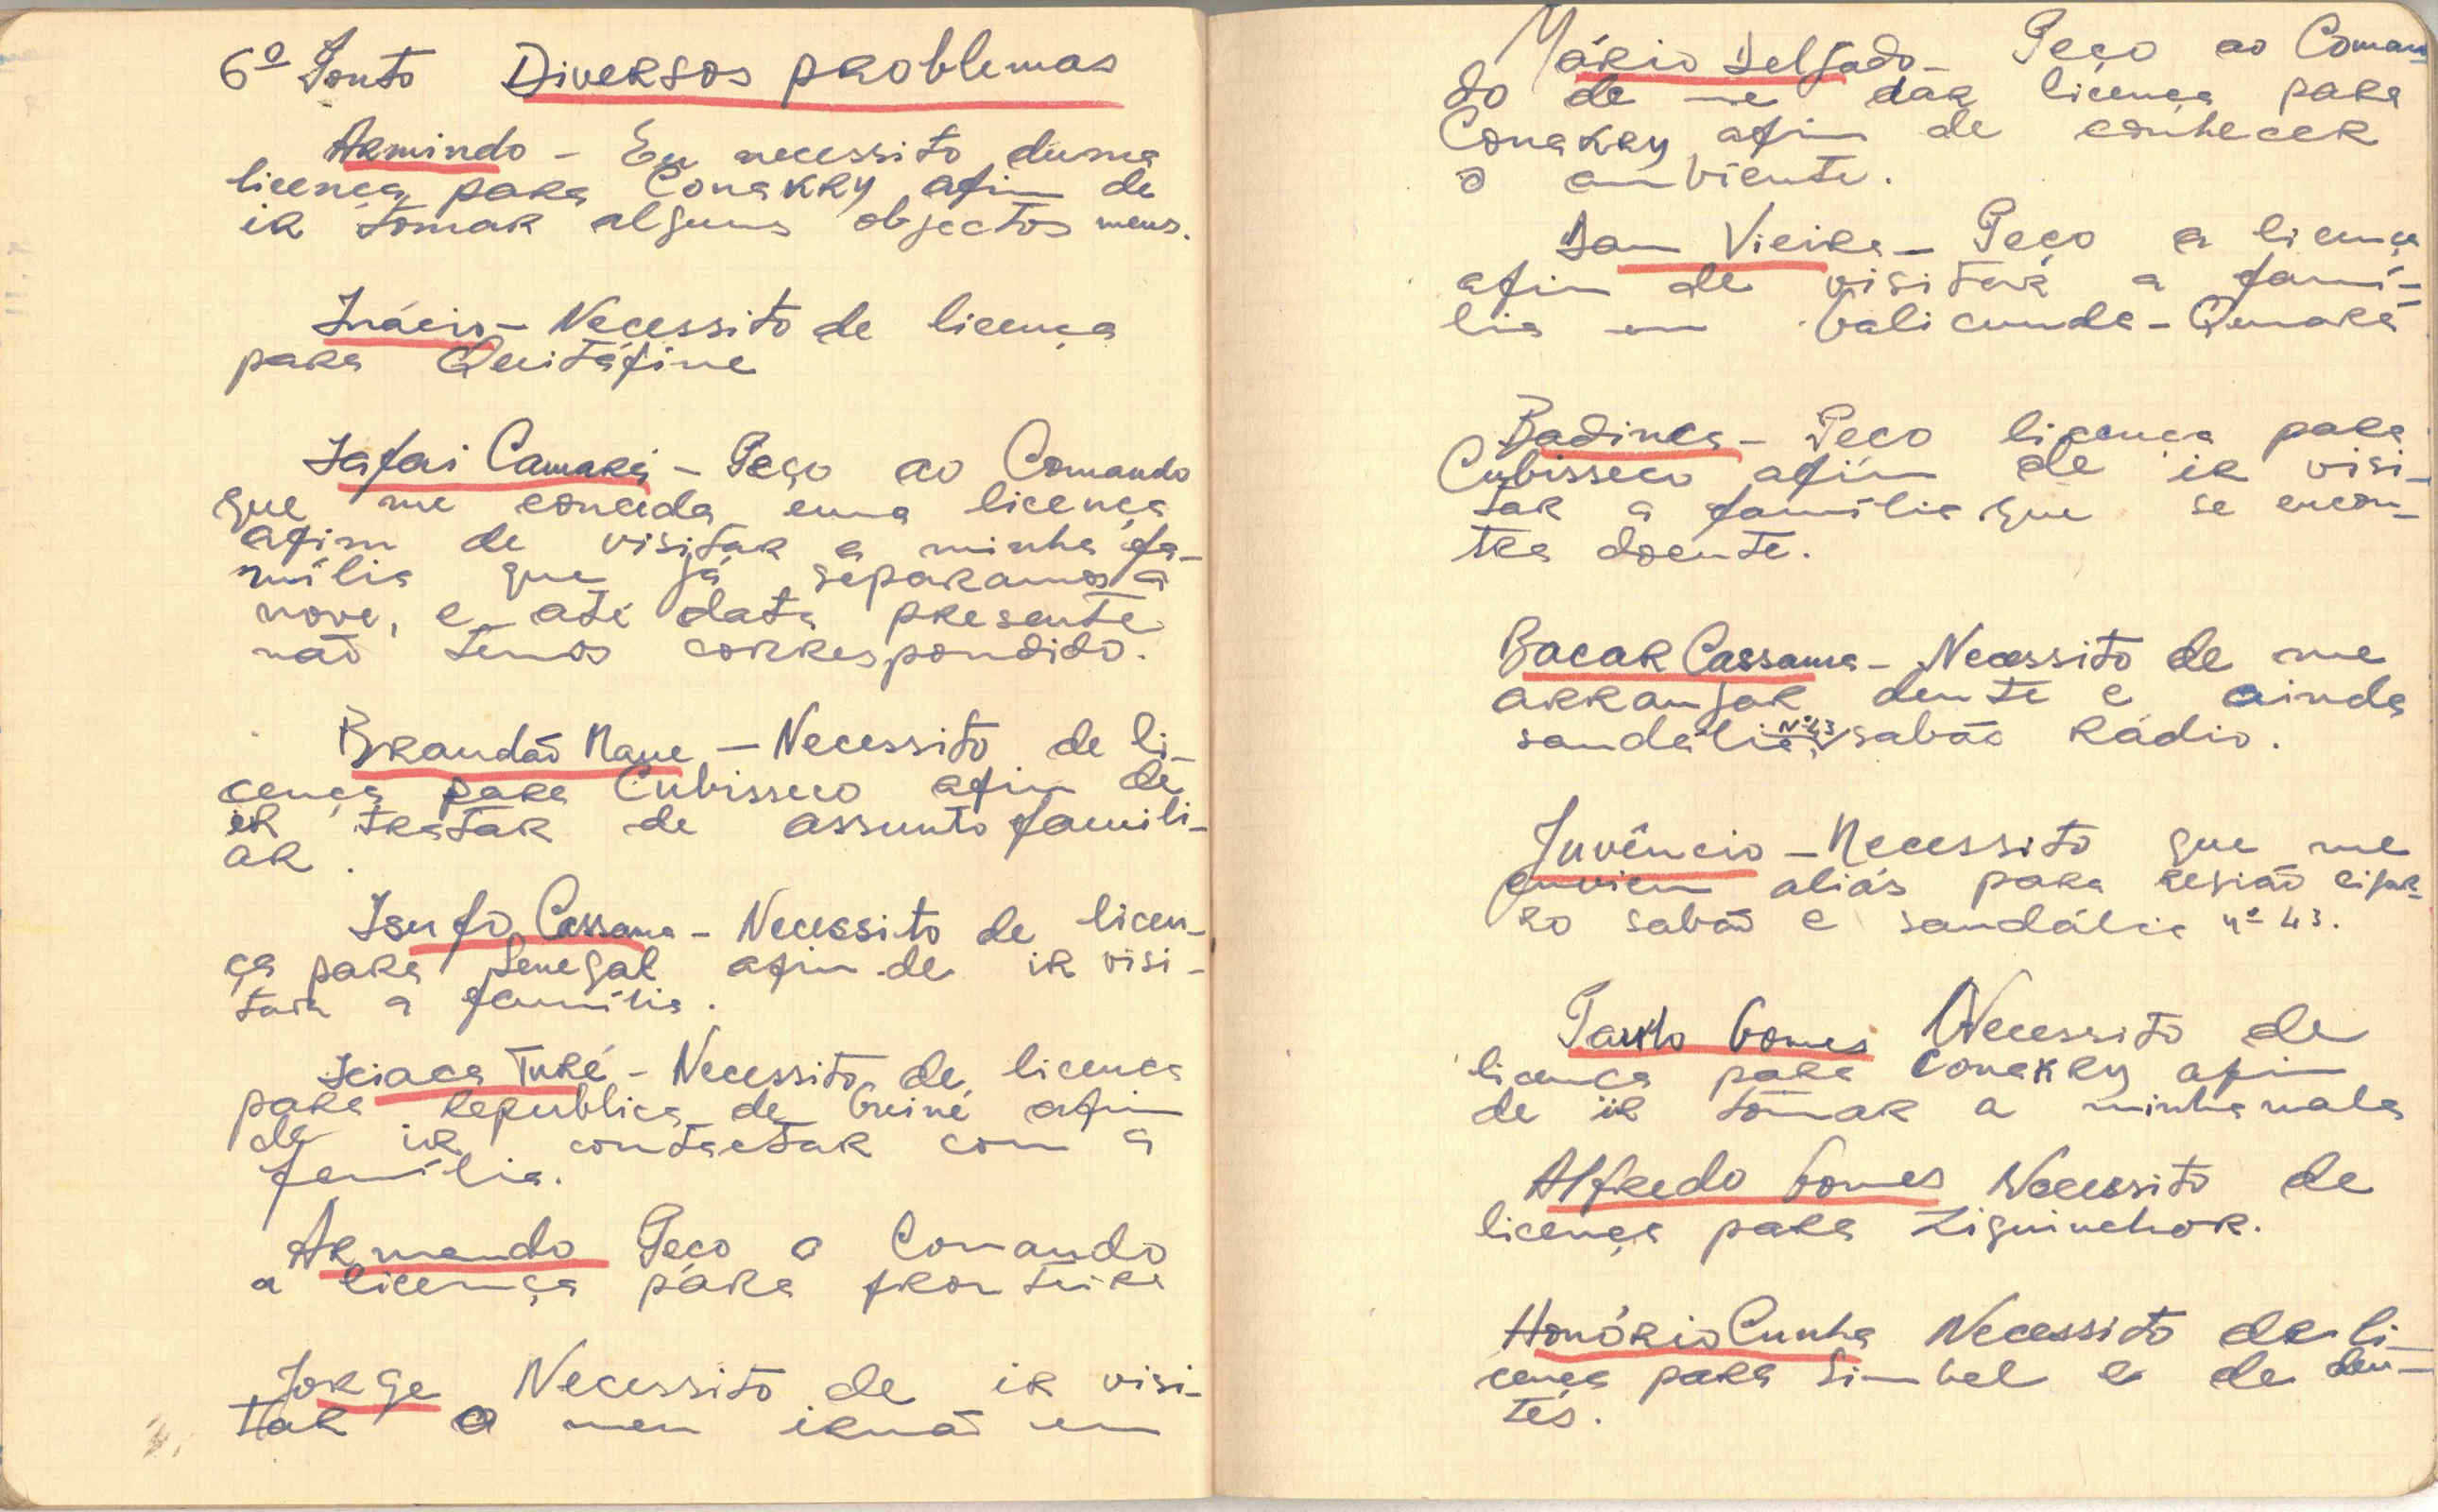 6º Ponto Diversos problemas
Armindo - Eu necessito duma
licença para Conakry afim de
ir tomar alguns objectos meus.
Inácio - Necessito de licença
para Quitáfine
Iafai Camará - Peço ao Comando
que me conceda uma licença
afim de visitar a minha fa-
mília que já separamos a
nove, e até data presente
não temos correspondido.
Brandão Mane - Necessito de li-
cença para Cubisseco afim de
ir tratar de assunto famili-
ar.
Isufo Cassama - Necessito de licen-
ça para Senegal afim de ir visi-
tar a família.
Iciaca Turé - Necessito de licença
para Republica de Guiné afim
de ir contactar com a
família.
Armando Peço o Comando
a licença para fronteira
Jorge Necessito de ir visi-
tar o meu irmão em
Mário Delgado - Peço ao Coman
do de me dar licença para
Conakry afim de conhecer
o ambiente.
Vieira - Peço a licença
afim de visitar a famí-
lia em balicunda - Quinará
Badinca - Peço licença para
Cubisseco afim de ir visi-
tar a família que se encon-
tra doente.
Bacar Cassama - Necessito de me
arranjar dente e ainda
sandália, Nº 43 sabão Rádio.
Juvêncio - Necessito que me
enviem aliás para região cigar-
ro sabão e sandália nº 43.
Paulo Gomes Necessito de
licença para Conakry afim
de ir tomar a minha mala
Alfredo Gomes Necessito de
licença para Ziguinchor.
Honório Cunha Necessito de li-
cença para Simbel e de den-
tes.